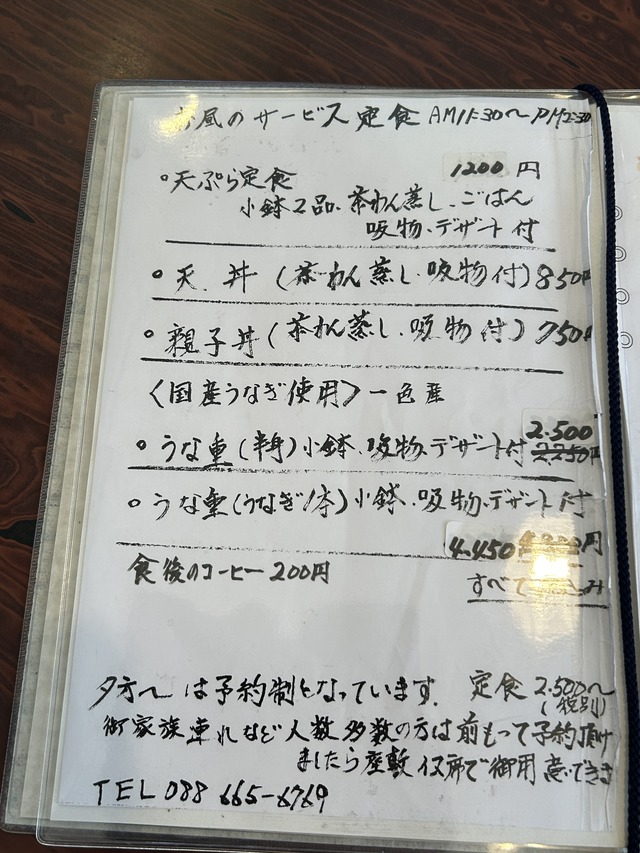 お昼のサービス定食 AM11:30〜PM2:30
1200円
・天ぷら定食
小鉢2品、茶わん蒸し、ごはん
吸物、デザート付
・天丼(茶わん蒸し、吸物付)850円
・親子丼(茶わん蒸し、吸物付)750円
〈国産うなぎ使用〉一色産
2.500
・うな重(半身)小鉢、吸物、デザート付 2250円
・うな重(うなぎ1本)小鉢、吸物、デザート付
4.450 円
食後のコーヒー200円
すべて込み
夕方〜は予約制となっています。 定食2.500〜
(税別)
御家族連れなど人数多数の方は前もって予約頂け
ましたら座敷イス席で御用意できま
TEL 088 665-6769